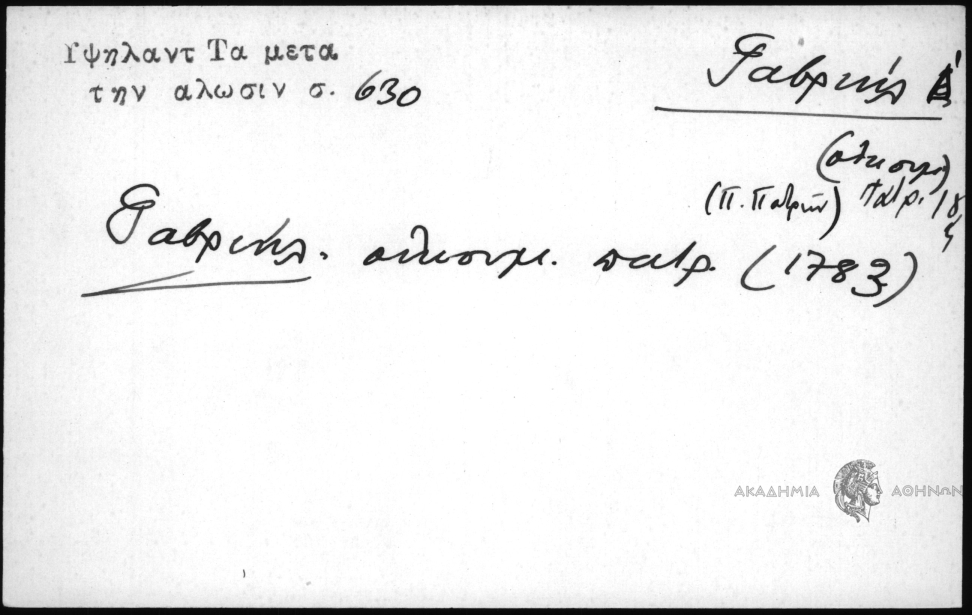 Υψηλαντ Τα μετα
την αλωσιν σ. 630
Γαβριήλ
(οικουμ)
(Π. Πατρών) πατρ. 18
Γαβριήλ. οικουμ. πατρ. (1783)
ΑΚΑΔΗΜΙΑ ΑΘΗΝΩΝ